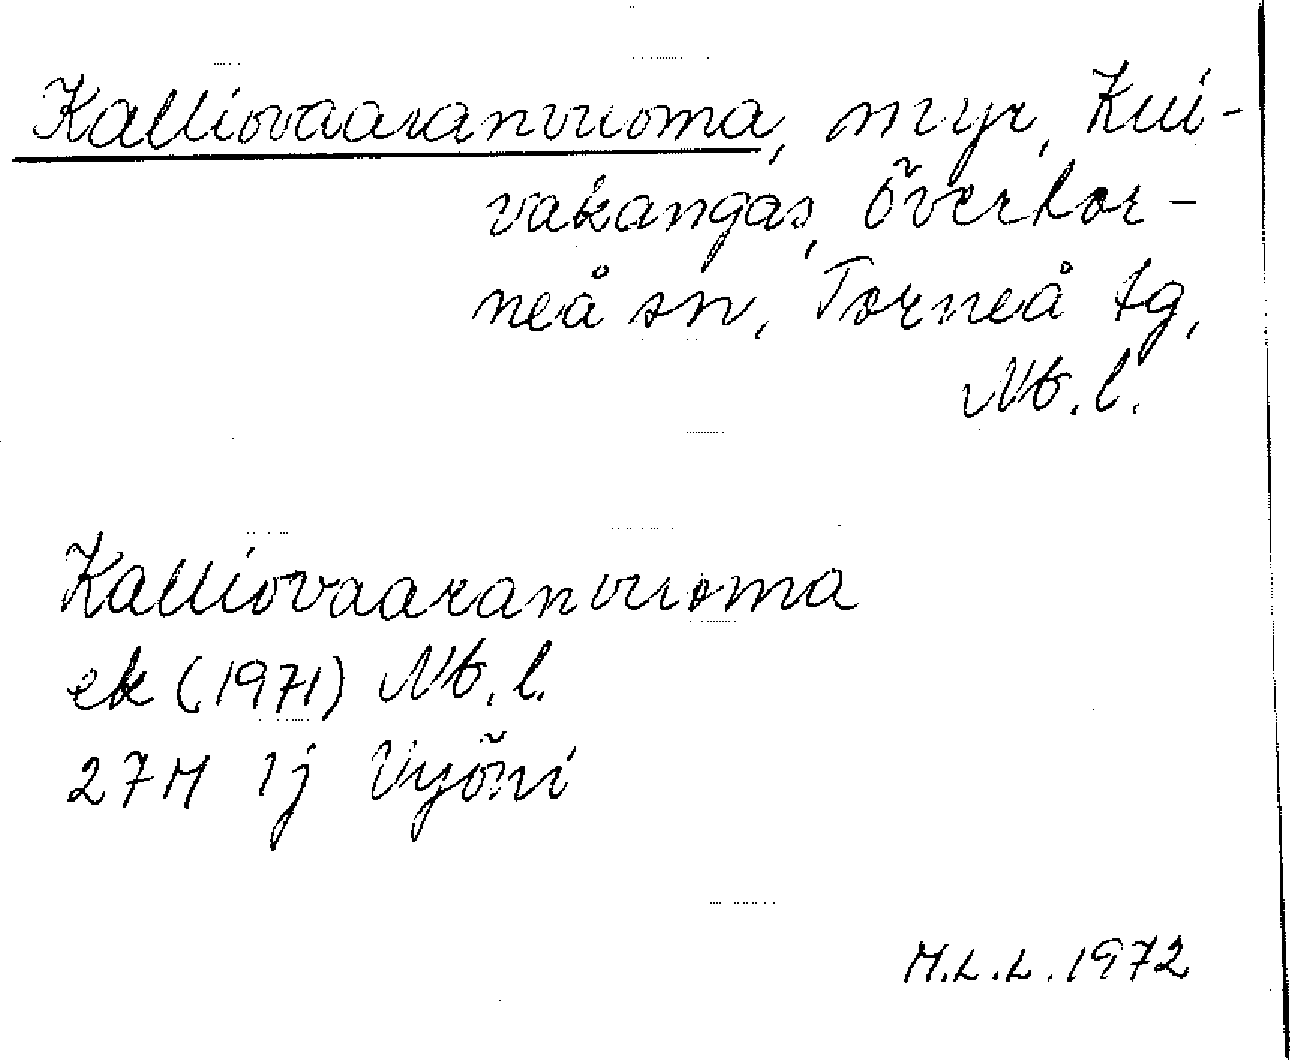 Kalliovaaranvuoma, myr, Kui-
vakangas, Övertor-
neå sn, Torneå tg,
Nb.l.
Kalliovaaranvuoma
ek (1971) Nb.l.
27M 1j Vyöni
M.L.L. 1972